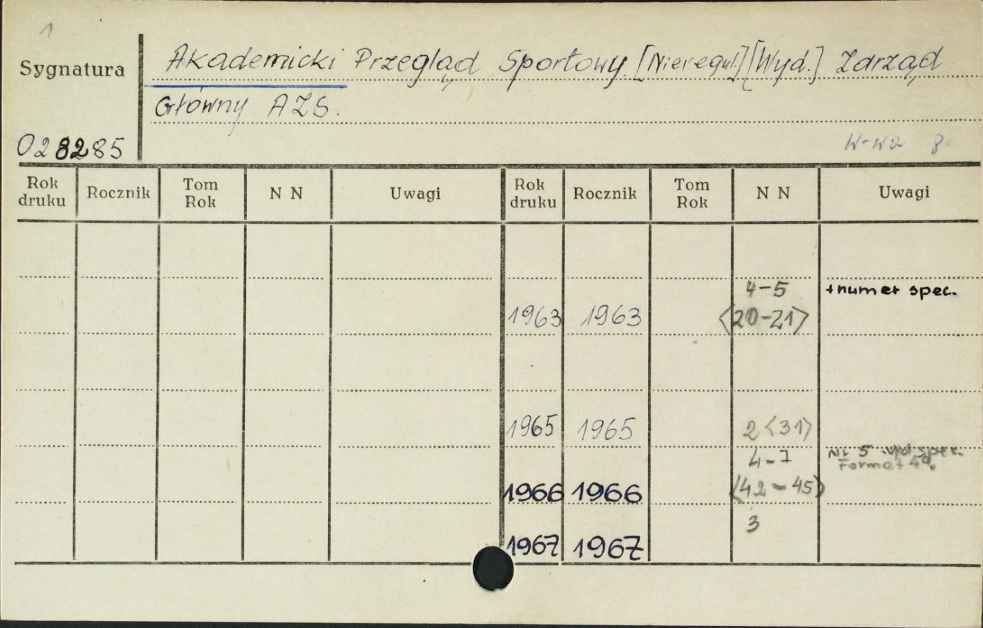 1
Sygnatura
Akademicki Przegląd Sportowy. [Nieregul.] [Wyd.] Zarząd
Główny AZS.
028285
W-wa 8°
Rok druku Rocznik Tom Rok N N Uwagi Rok druku Rocznik Tom Rok N N Uwagi
4-5 + numer spec.
1963 1963 <20-21>
1965 1965 2 <31>
4-7 Nr 5 wyd. spec.
Format 4°.
1966 1966 <42-45>
3
1967 1967